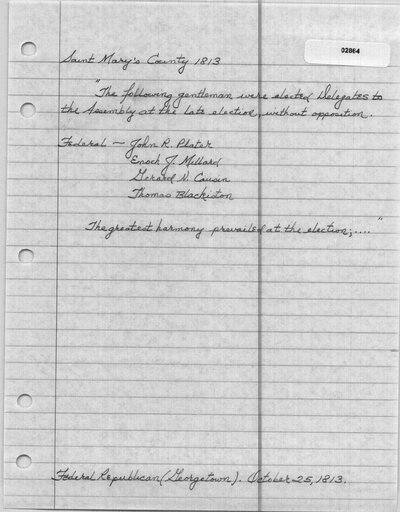 02864
Saint Mary's County 1813
"The following gentleman were elected Delegates to
the Assembly at the late election, without opposition.
Federal — John R. Plater
Enoch J. Millard
Gerard N. Causin
Thomas Blackiston
The greatest harmony prevailed at the election;...."
Federal Republican (Georgetown). October 25, 1813.